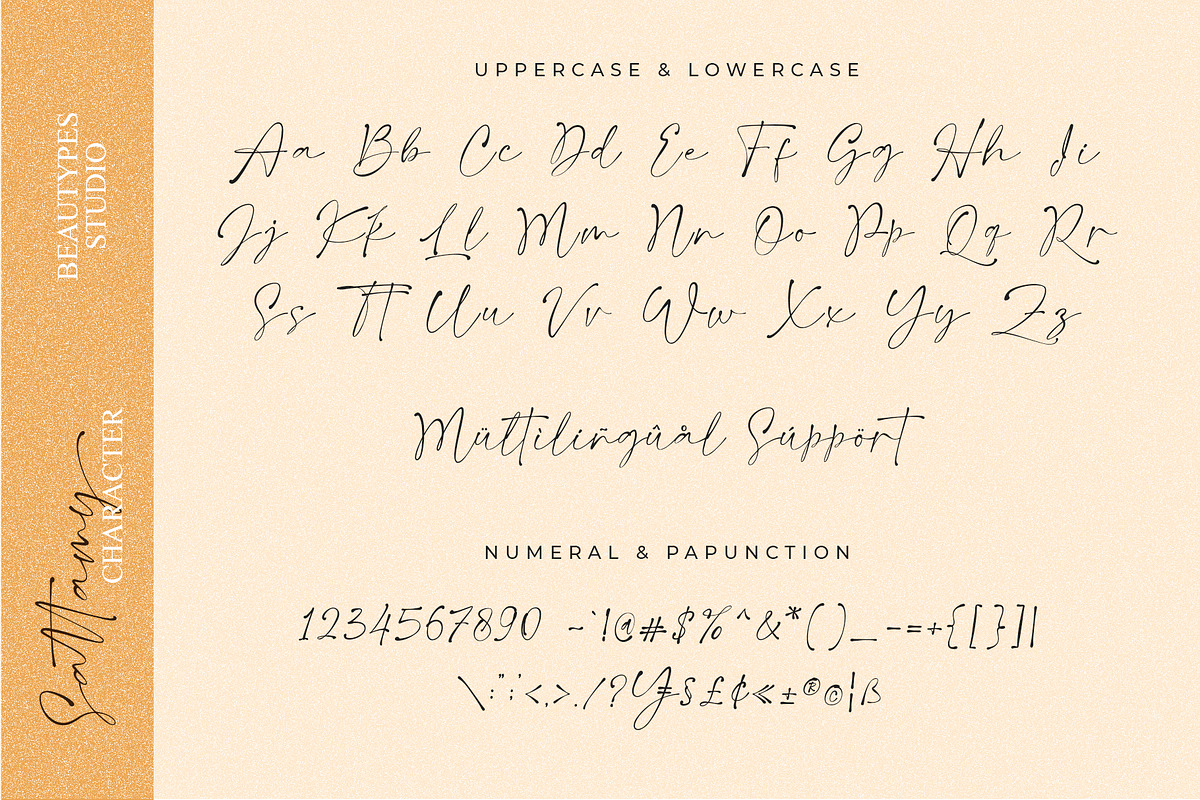 BEAUTYPES
STUDIO
Sattamy
CHARACTER
UPPERCASE & LOWERCASE
Aa Bb Cc Dd Ee Ff Gg Hh Ii
Jj Kk Ll Mm Nn Oo Pp Qq Rr
Ss Tt Uu Vv Ww Xx Yy Zz
Mültiliñgûål Súppört
NUMERAL & PAPUNCTION
1234567890 ~`!@#$%^&*()_-=+{[}]|
\:";'<,>./?¥§£¢«±®©¦ß